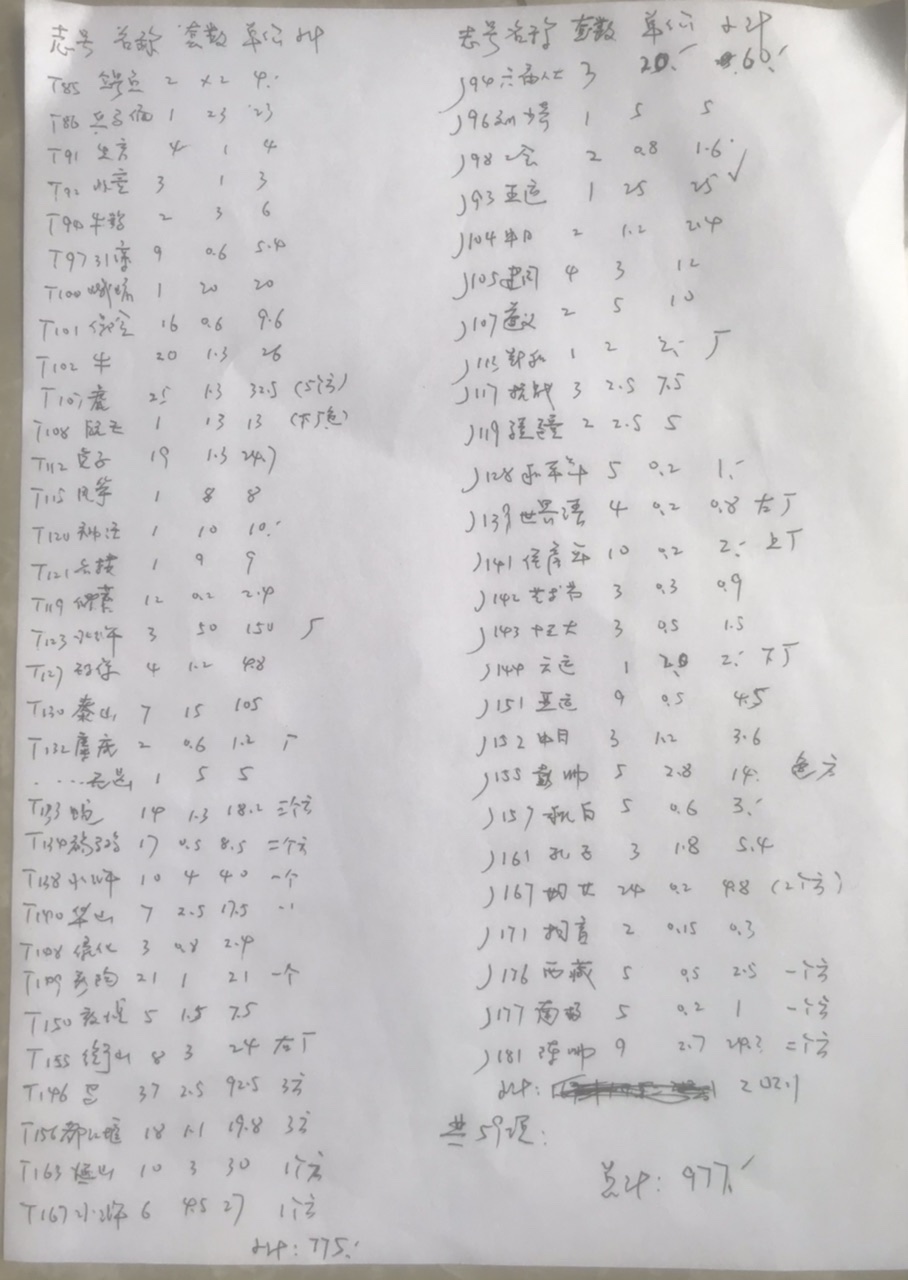 志号 名称 套数 单价 小计
T85 2 ×2 4.
T86 兵马俑 1 23 23
T91 4 1 4
T92 3 1 3
T94 朱鹮 2 3 6
T97 31 9 0.6 5.4
T100 峨嵋 1 20 20
T101 16 0.6 9.6
T102 牛 20 1.3 26
T107 虎 25 1.3 32.5 (5个方)
T108 航天 1 13 13 (下5色)
T112 兔子 19 1.3 24.7
T115 风筝 1 8 8
T120 神话 1 10 10.
T121 名楼 1 9 9
T119 体育 12 0.2 2.4
T123 水浒 3 50 150 厂
T127 环保 4 1.2 4.8
T130 泰山 7 15 105
T132 麋鹿 2 0.6 1.2 厂
……无齿 1 5 5
T133 蛇 14 1.3 18.2 三个方
T134 17 0.5 8.5 二个方
T138 水浒 10 4 40 一个
T140 华山 7 2.5 17.5
T108 绿化 3 0.8 2.4
T149 彩陶 21 1 21 一个
T150 敦煌 5 1.5 7.5
T155 衡山 8 3 24 右厂
T146 37 2.5 92.5 3方
T156 都江堰 18 1.1 19.8 3方
T163 恒山 10 3 30 1个方
T167 水浒 6 4.5 27 1个方
小计: 775.
志号 名称 套数 单价 小计
J94 六届人大 3 20. 60.
J96 1 5 5
J98 2 0.8 1.6
J93 亚运 1 25 25 √
J104 中日 2 1.2 2.4
J105 建国 4 3 12
J107 遵义 2 5 10
J113 郑和 1 2 2. 厂
J117 抗战 3 2.5 7.5
J119 疆 2 2.5 5
J128 和平年 5 0.2 1.
J139 世界语 4 0.2 0.8 右厂
J141 住房年 10 0.2 2. 上厂
J142 艺术节 3 0.3 0.9
J143 十三大 3 0.5 1.5
J144 六运 1 2.0 2. 下厂
J151 亚运 9 0.5 4.5
J152 中日 3 1.2 3.6
J155 彭帅 5 2.8 14. 色方
J157 5 0.6 3.
J161 孔子 3 1.8 5.4
J167 妇女 24 0.2 4.8 (2个方)
J171 2 0.15 0.3
J176 西藏 5 0.5 2.5 一个方
J177 南极 5 0.2 1 一个方
J181 陈帅 9 2.7 24.3 二个方
小计: 202.1
共59项:
总计: 977.